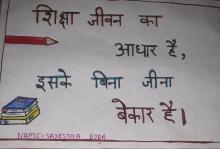 शिक्षा जीवन का
आधार है,
इसके बिना जीना
बेकार है।
NAME- SAYESTHA BORA